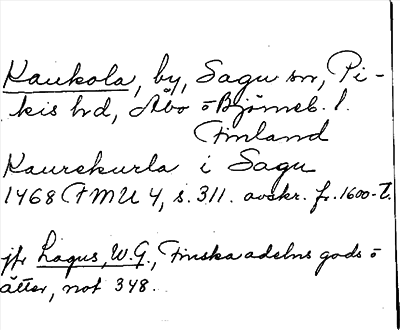 Kaukola, by, Sagu sn, Pi-
kis hd, Åbo o Björneb. l.
Finland
Kaurekurla i Sagu
1468 FMU 4, s. 311. avskr. fr. 1600-t.
jfr Lagus, W.G., Finska adelns gods o
ätter, not 348.